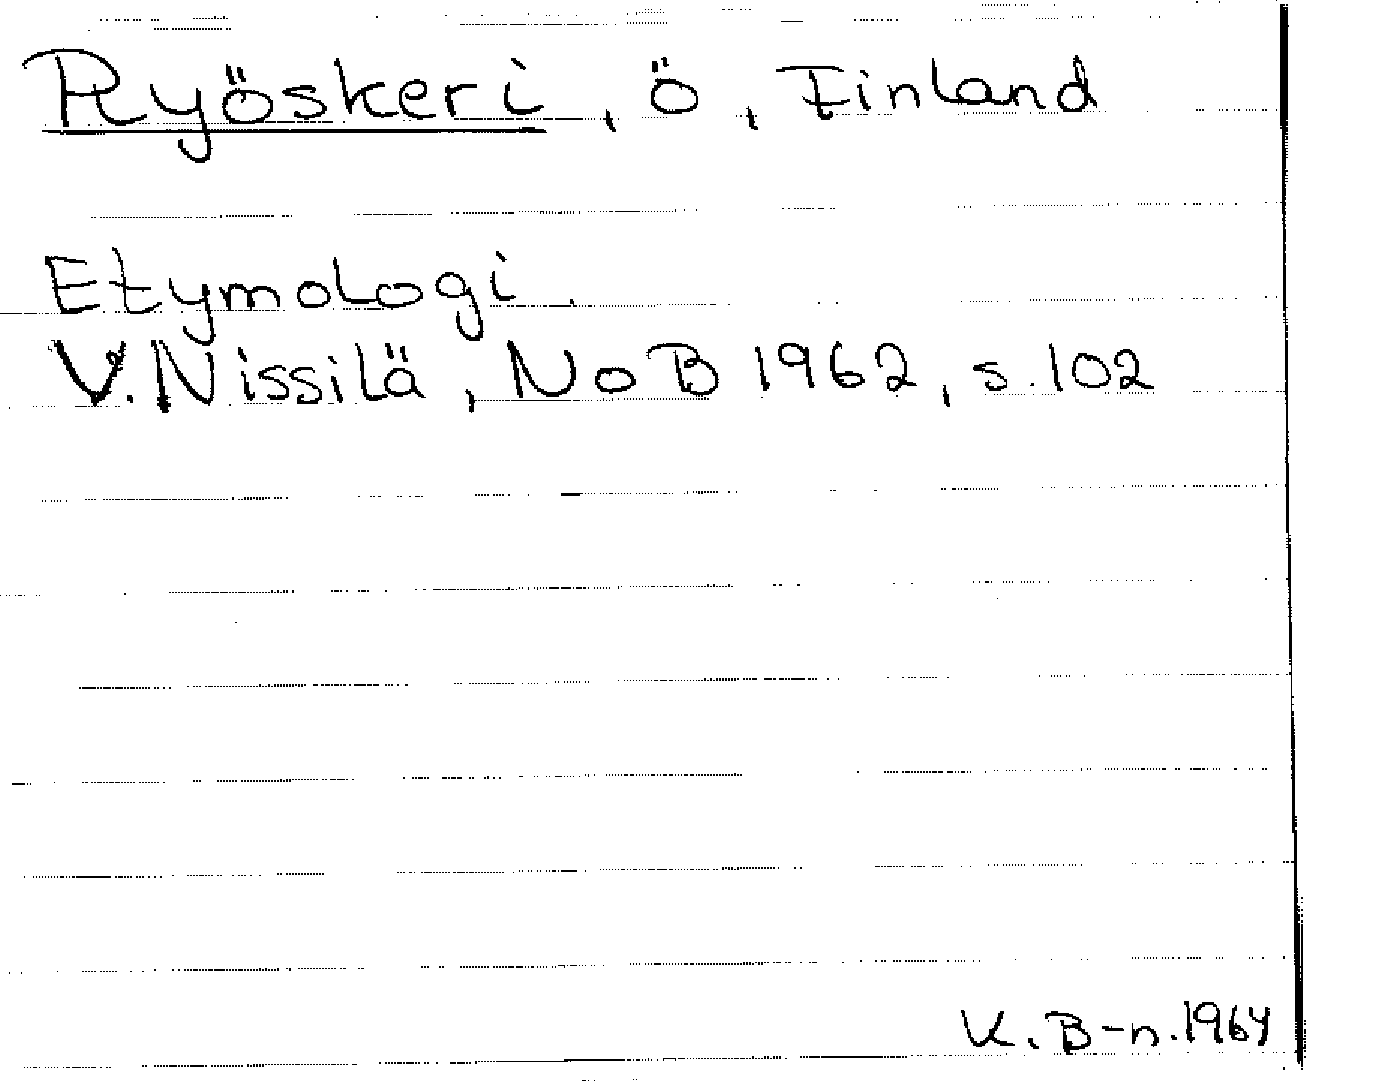 Ryöskeri, ö, Finland
Etymologi.
V. Nissilä, NoB 1962, s. 102
K. B-n. 1964